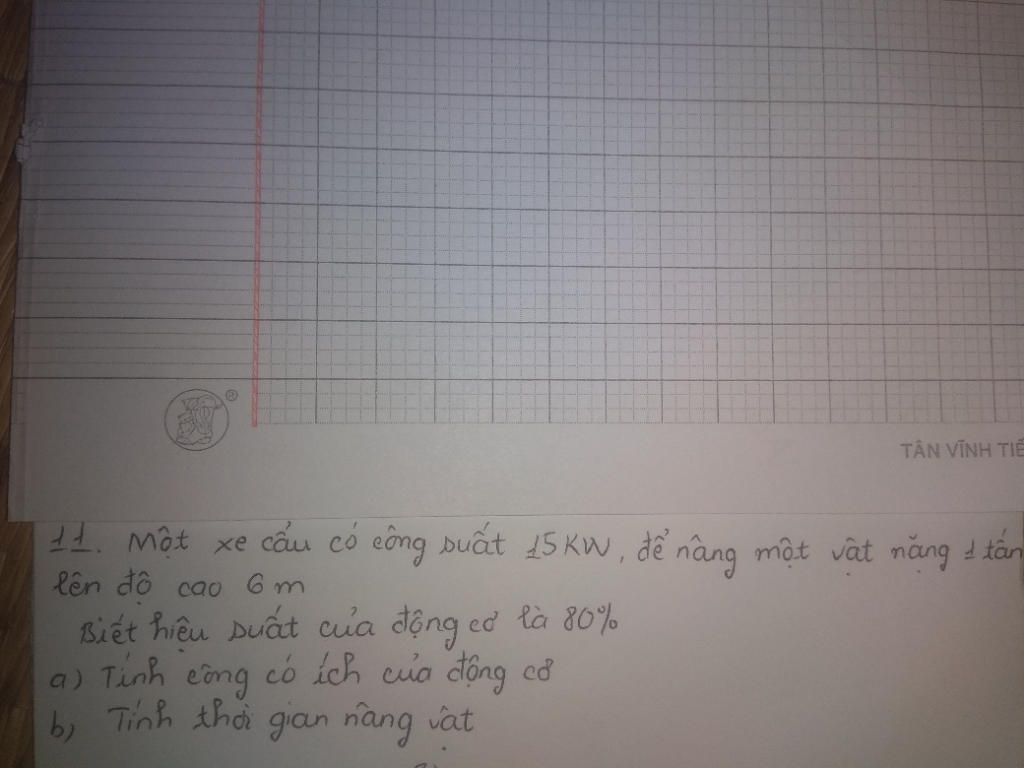 ®
TÂN VĨNH TIẾ
11. Một xe cẩu có công suất 15KW, để nâng một vật nặng 1 tấn
lên độ cao 6m
Biết hiệu suất của động cơ là 80%
a) Tính công có ích của động cơ
b) Tính thời gian nâng vật